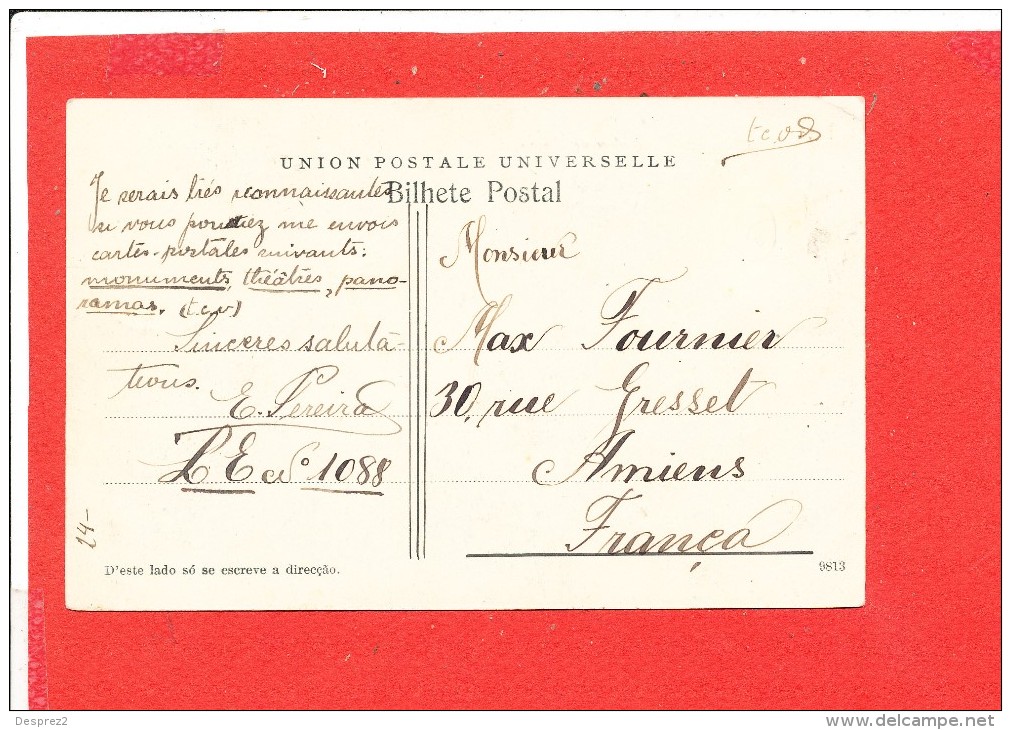 t.c.v.
UNION POSTALE UNIVERSELLE
Bilhete Postal
Je serais trés reconnaissantes
si vous pouviez me envois
cartes-postales suivants:
monuments, théâtres, pano-
ramas. (t.c.v)
Sinceres saluta-
tions.
E. Pereira
L E Nº 1088
24-
Monsieur
Max Fournier
30, rue Gresset
Amiens
França
D'este lado só se escreve a direcção.
9813
Desprez2
www.delcampe.net